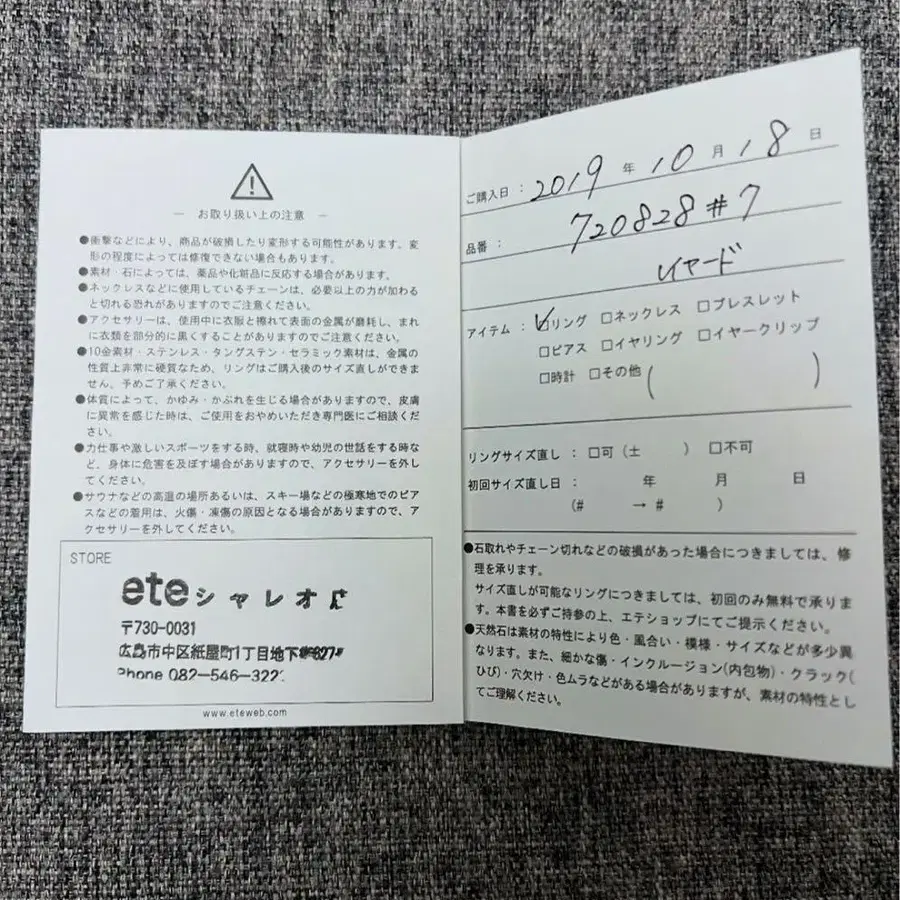 お取り扱い上の注意
●衝撃などにより、商品が破損したり変形する可能性があります。変
形の程度によっては修復できない場合もあります。
●素材・石によっては、薬品や化粧品に反応する場合があります。
●ネックレスなどに使用しているチェーンは、必要以上の力が加わる
と切れる恐れがありますのでご注意ください。
●アクセサリーは、使用中に衣服と擦れて表面の金属が磨耗し、まれ
に衣類を部分的に黒くすることがありますのでご注意ください。
●10金素材・ステンレス・タングステン・セラミック素材は、金属の
性質上非常に硬質なため、リングはご購入後のサイズ直しができま
せん。予めご了承ください。
●体質によって、かゆみ・かぶれを生じる場合がありますので、皮膚
に異常を感じた時は、ご使用をおやめいただき専門医にご相談くだ
さい。
●力仕事や激しいスポーツをする時、就寝時や幼児の世話をする時な
ど、身体に危害を及ぼす場合がありますので、アクセサリーを外し
てください。
●サウナなどの高温の場所あるいは、スキー場などの極寒地でのピア
スなどの着用は、火傷・凍傷の原因となる場合がありますので、ア
クセサリーを外してください。
STORE
ete シャレオ
〒730-0031
広島市中区紙屋町1丁目地下
Phone 082-546-322
www.eteweb.com
ご購入日 : 2019 年 10 月 18 日
品番 : 720828 #7
レイヤード
アイテム : ☑リング □ネックレス □ブレスレット
□ピアス □イヤリング □イヤークリップ
□時計 □その他 ( )
リングサイズ直し : □可 (± ) □不可
初回サイズ直し日 : 年 月 日
(# → # )
●石取れやチェーン切れなどの破損があった場合につきましては、修
理を承ります。
サイズ直しが可能なリングにつきましては、初回のみ無料で承りま
す。本書を必ずご持参の上、エテショップにてご提示ください。
●天然石は素材の特性により色・風合い・模様・サイズなどが多少異
なります。また、細かな傷・インクルージョン(内包物)・クラック(
ひび)・穴欠け・色ムラなどがある場合がありますが、素材の特性とし
てご理解ください。